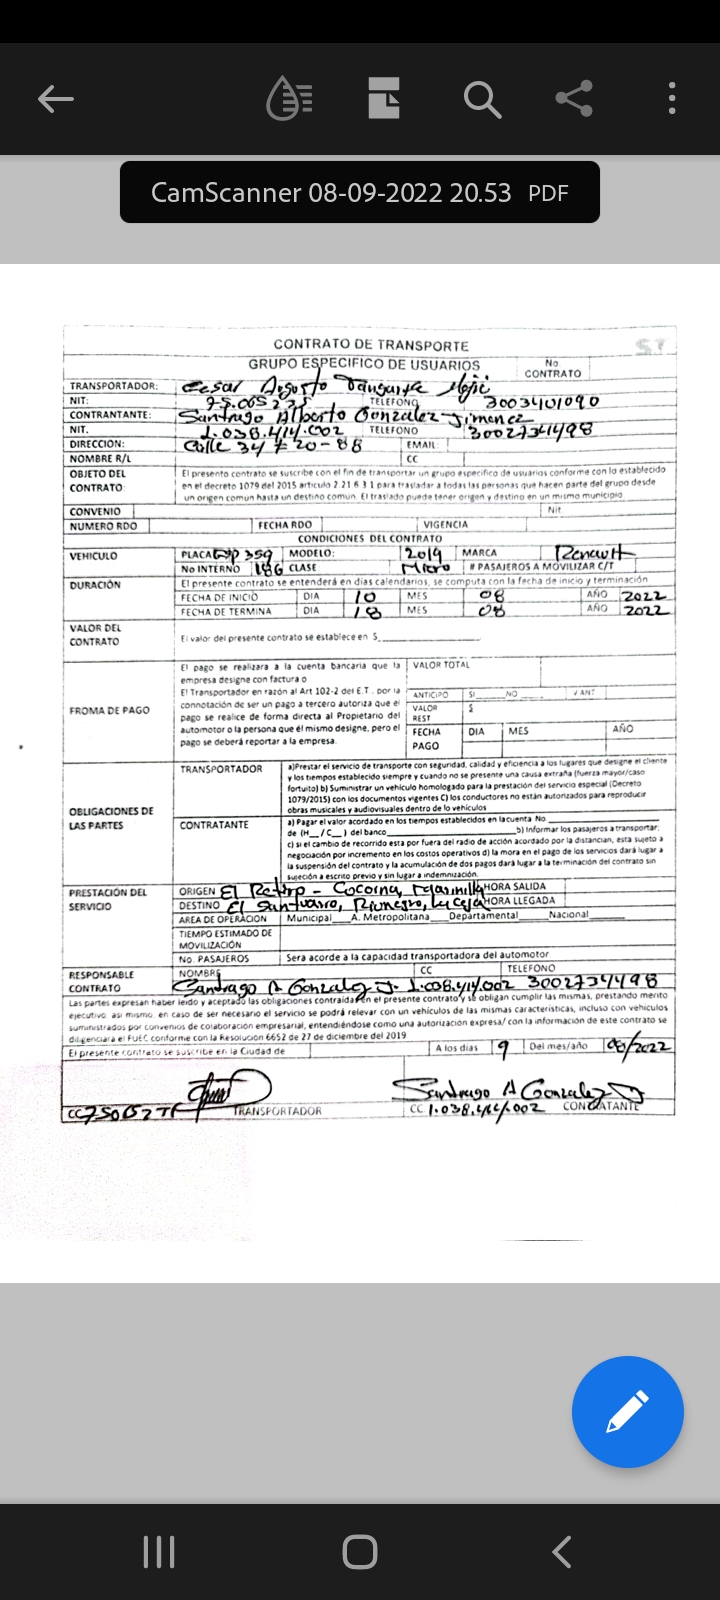 CamScanner 08-09-2022 20.53 PDF
CONTRATO DE TRANSPORTE
GRUPO ESPECIFICO DE USUARIOS No CONTRATO
TRANSPORTADOR: Cesar Augusto
NIT: TELEFONO 3003401090
CONTRANTANTE: Santiago Alberto Gonzalez Jimenez
NIT. 1.038.414.002 TELEFONO 3002734498
DIRECCION: Calle 34 # 20-88 EMAIL
NOMBRE R/L CC
OBJETO DEL CONTRATO: El presente contrato se suscribe con el fin de transportar un grupo especifico de usuarios conforme con lo establecido
en el decreto 1079 del 2015 articulo 2.21.6.3.1 para trasladar a todas las personas que hacen parte del grupo desde
un origen comun hasta un destino comun. El traslado puede tener origen y destino en un mismo municipio
CONVENIO Nit.
NUMERO RDO FECHA RDO VIGENCIA
CONDICIONES DEL CONTRATO
VEHICULO PLACA 359 MODELO: 2019 MARCA Renault
No INTERNO 186 CLASE Micro # PASAJEROS A MOVILIZAR C/T
DURACIÓN El presente contrato se entenderá en dias calendarios, se computa con la fecha de inicio y terminación
FECHA DE INICIO DIA 10 MES 08 AÑO 2022
FECHA DE TERMINA DIA 18 MES 08 AÑO 2022
VALOR DEL CONTRATO El valor del presente contrato se establece en $
FROMA DE PAGO
El pago se realizara a la cuenta bancaria que la
empresa designe con factura o
El Transportador en razón al Art 102-2 del E.T. por la
connotación de ser un pago a tercero autoriza que el
pago se realice de forma directa al Propietario del
automotor o la persona que él mismo designe, pero el
pago se deberá reportar a la empresa.
VALOR TOTAL
ANTICIPO SI NO V ANT
VALOR REST $
FECHA PAGO DIA MES AÑO
OBLIGACIONES DE LAS PARTES
TRANSPORTADOR a)Prestar el servicio de transporte con seguridad, calidad y eficiencia a los lugares que designe el cliente
y los tiempos establecido siempre y cuando no se presente una causa extraña (fuerza mayor/caso
fortuito) b) Suministrar un vehículo homologado para la prestación del servicio especial (Decreto
1079/2015) con los documentos vigentes C) los conductores no están autorizados para reproducir
obras musicales y audiovisuales dentro de lo vehículos
CONTRATANTE a) Pagar el valor acordado en los tiempos establecidos en la cuenta No
de (H__/C__) del banco b) Informar los pasajeros a transportar;
c) si el cambio de recorrido esta por fuera del radio de acción acordado por la distancian, esta sujeto a
negociación por incremento en los costos operativos d) la mora en el pago de los servicios dará lugar a
la suspensión del contrato y la acumulación de dos pagos dará lugar a la terminación del contrato sin
sujeción a escrito previo y sin lugar a indemnización.
PRESTACIÓN DEL SERVICIO
ORIGEN El Retiro - Cocorna, HORA SALIDA
DESTINO El Santuario, Rionegro, La Ceja HORA LLEGADA
AREA DE OPERACION Municipal___A. Metropolitana___Departamental___Nacional
TIEMPO ESTIMADO DE MOVILIZACIÓN
No. PASAJEROS Sera acorde a la capacidad transportadora del automotor
RESPONSABLE CONTRATO NOMBRE CC TELEFONO
Santiago A Gonzalez J. 1.038.414.002 3002734498
Las partes expresan haber leido y aceptado las obligaciones contraidas en el presente contrato y se obligan cumplir las mismas, prestando merito
ejecutivo. asi mismo, en caso de ser necesario el servicio se podrá relevar con un vehículos de las mismas características, incluso con vehículos
suministrados por convenios de colaboración empresarial, entendiéndose como una autorización expresa/ con la información de este contrato se
diligenciara el FUEC conforme con la Resolución 6652 de 27 de diciembre del 2019
El presente contrato se suscribe en la Ciudad de A los días 9 Del mes/año 08/2022
Santiago A Gonzalez J
CC TRANSPORTADOR CC 1.038.414.002 CONTRATANTE